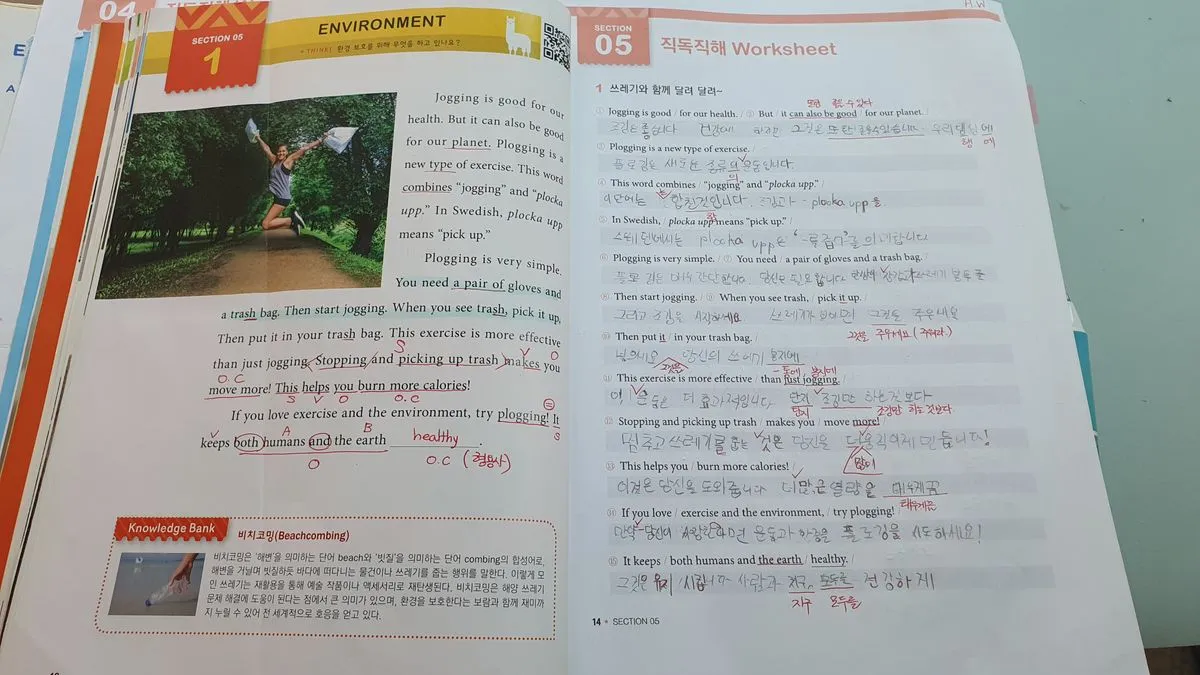 04
SECTION 05
1
ENVIRONMENT
THINK! 환경 보호를 위해 무엇을 하고 있나요?
Jogging is good for our
health. But it can also be good
for our planet. Plogging is a
new type of exercise. This word
combines “jogging” and “plocka
upp.” In Swedish, plocka upp
means “pick up.”
Plogging is very simple.
You need a pair of gloves and
a trash bag. Then start jogging. When you see trash, pick it up.
Then put it in your trash bag. This exercise is more effective
S
than just jogging. Stopping and picking up trash makes you
V O
O.C
move more! This helps you burn more calories!
S V O O.C
If you love exercise and the environment, try plogging! It
S
V A B
keeps both humans and the earth healthy.
O O.C (형용사)
Knowledge Bank
비치코밍(Beachcombing)
비치코밍은 '해변'을 의미하는 단어 beach와 '빗질'을 의미하는 단어 combing의 합성어로,
해변을 거닐며 빗질하듯 바다에 떠다니는 물건이나 쓰레기를 줍는 행위를 말한다. 이렇게 모
인 쓰레기는 재활용을 통해 예술 작품이나 액세서리로 재탄생된다. 비치코밍은 해양 쓰레기
문제 해결에 도움이 된다는 점에서 큰 의미가 있으며, 환경을 보호한다는 보람과 함께 재미까
지 누릴 수 있어 전 세계적으로 호응을 얻고 있다.
H.W
SECTION
05
직독직해 Worksheet
1 쓰레기와 함께 달려 달려~
① Jogging is good / for our health. / ② But / it can also be good / for our planet. /
조깅은 좋습니다 건강에 하지만 그것은 또한
③ Plogging is a new type of exercise. /
플로깅은 새로운 종류의 운동입니다.
의
④ This word combines / “jogging” and “plocka upp.” /
이 단어는 합친것입니다. 조깅과 plocka upp을.
⑤ In Swedish, / plocka upp means “pick up.” /
스웨덴에서는 plocka upp은
⑥ Plogging is very simple. / ⑦ You need / a pair of gloves and a trash bag. /
당신은 필요합니다
⑧ Then start jogging. / ⑨ When you see trash, / pick it up. /
그리고 조깅을 시작하세요. 쓰레기가 보이면 그것을 주우세요
그것을 주우세요 (주워라.)
⑩ Then put it / in your trash bag. /
당신의 쓰레기 봉지에
그것을
⑪ This exercise is more effective / than just jogging. /
이 운동은 더 효과적입니다 단지 조깅만 하는것 보다
단지 조깅만 하는것보다
⑫ Stopping and picking up trash / makes you / move more! /
멈추고 쓰레기를 줍는 것은 당신을 더 움직이게 만듭니다!
많이
⑬ This helps you / burn more calories! /
이것은 당신을 도와줍니다 더 많은 열량을 태우게끔
태우게끔
⑭ If you love / exercise and the environment, / try plogging! /
만약 당신이 사랑한다면 운동과 환경을 플로깅을 시도하세요!
⑮ It keeps / both humans and the earth / healthy. /
그것은 유지 사람과 지구, 모두를 건강하게
지구 모두를
14 SECTION 05